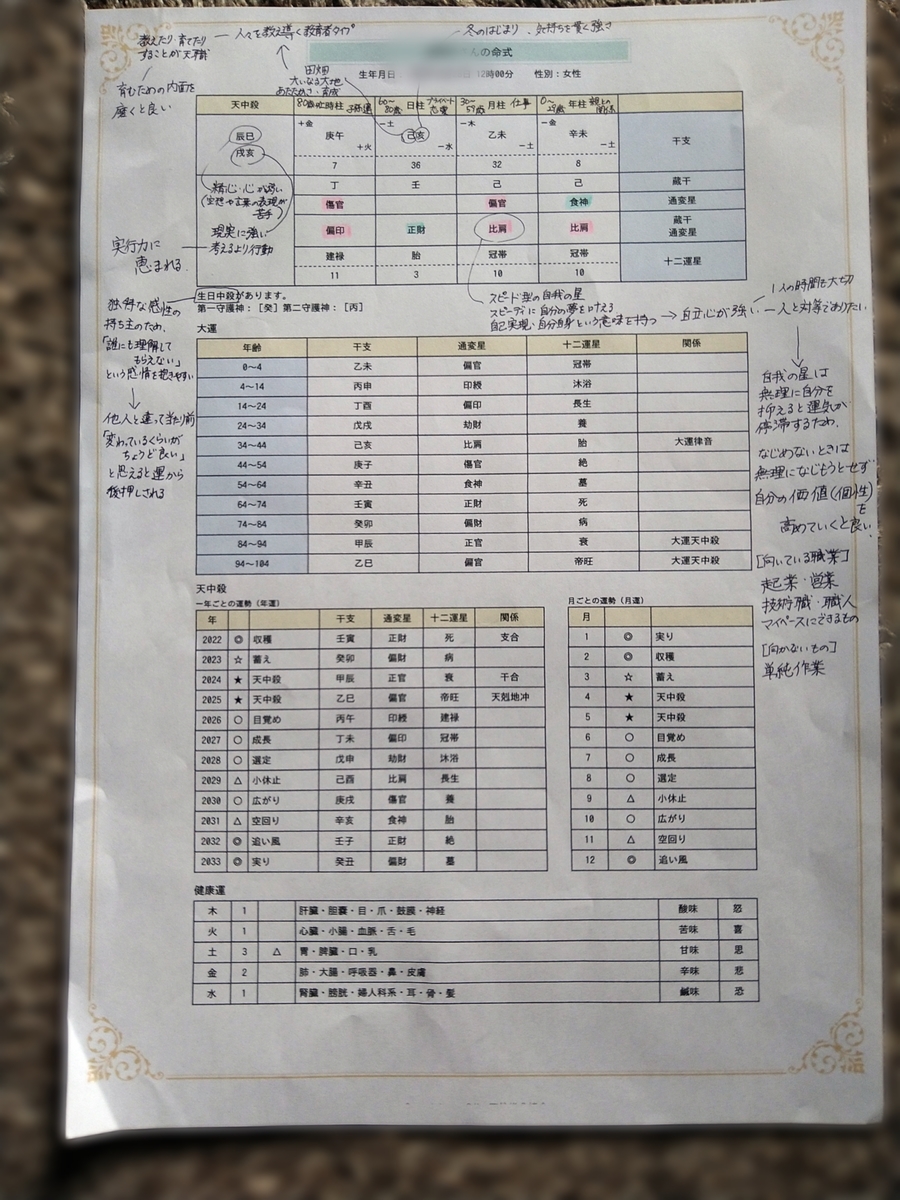 教えたり・育てたり
することが天職
人々を教え導く教育者タイプ
冬のはじまり、気持ちを貫く強さ
育むための内面を
磨くと良い
田畑
大いなる大地
あたたかさ・育成
んの命式
生年月日 12時00分 性別：女性
天中殺 80歳以降 時柱 子孫運 60～80歳 日柱 プライベート 恋愛 30～59歳 月柱 仕事 0～29歳 年柱 親との関係
辰巳
戌亥
+金 庚午 +火 -土 己亥 -水 -木 乙未 -土 -金 辛未 -土 干支
7 36 32 8
丁 壬 己 己 蔵干
傷官 偏官 食神 通変星
偏印 正財 比肩 比肩 蔵干 通変星
建禄 胎 冠帯 冠帯 十二運星
11 3 10 10
精神・心が弱い
(空想や言葉の表現が
苦手)
現実に強い
考えるより行動
実行力に
恵まれる
生日中殺があります。
第一守護神：[癸] 第二守護神：[丙]
スピード型の自我の星
スピーディに自分の夢を叶える
自己実現・自分自身という意味を持つ → 自立心が強い
1人の時間も大切
人と対等でありたい
独特な感性の
持ち主のため、
「誰にも理解して
もらえない」
という感情を抱きやすい
↓
他人と違って当たり前
「変わっているくらいが
ちょうど良い」
と思えると運から
後押しされる
自我の星は
無理に自分を
抑えると運気が
停滞するため、
なじめないときは
無理になじもうとせず
自分の価値(個性)
を
高めていくと良い
[向いている職業]
起業・営業
技術職・職人
マイペースにできるもの
[向かないもの]
単純作業
大運
年齢 干支 通変星 十二運星 関係
0～4 乙未 偏官 冠帯
4～14 丙申 印綬 沐浴
14～24 丁酉 偏印 長生
24～34 戊戌 劫財 養
34～44 己亥 比肩 胎 大運律音
44～54 庚子 傷官 絶
54～64 辛丑 食神 墓
64～74 壬寅 正財 死
74～84 癸卯 偏財 病
84～94 甲辰 正官 衰 大運天中殺
94～104 乙巳 偏官 帝旺 大運天中殺
天中殺
一年ごとの運勢（年運）
年 干支 通変星 十二運星 関係
2022 ◎ 収穫 壬寅 正財 死 支合
2023 ☆ 蓄え 癸卯 偏財 病
2024 ★ 天中殺 甲辰 正官 衰 干合
2025 ★ 天中殺 乙巳 偏官 帝旺 天剋地冲
2026 ○ 目覚め 丙午 印綬 建禄
2027 ○ 成長 丁未 偏印 冠帯
2028 ○ 選定 戊申 劫財 沐浴
2029 △ 小休止 己酉 比肩 長生
2030 ○ 広がり 庚戌 傷官 養
2031 △ 空回り 辛亥 食神 胎
2032 ◎ 追い風 壬子 正財 絶
2033 ◎ 実り 癸丑 偏財 墓
月ごとの運勢（月運）
月
1 ◎ 実り
2 ◎ 収穫
3 ☆ 蓄え
4 ★ 天中殺
5 ★ 天中殺
6 ○ 目覚め
7 ○ 成長
8 ○ 選定
9 △ 小休止
10 ○ 広がり
11 △ 空回り
12 ◎ 追い風
健康運
木 1 肝臓・胆嚢・目・爪・鼓膜・神経 酸味 怒
火 1 心臓・小腸・血脈・舌・毛 苦味 喜
土 3 △ 胃・脾臓・口・乳 甘味 思
金 2 肺・大腸・呼吸器・鼻・皮膚 辛味 悲
水 1 腎臓・膀胱・婦人科系・耳・骨・髪 鹹味 恐